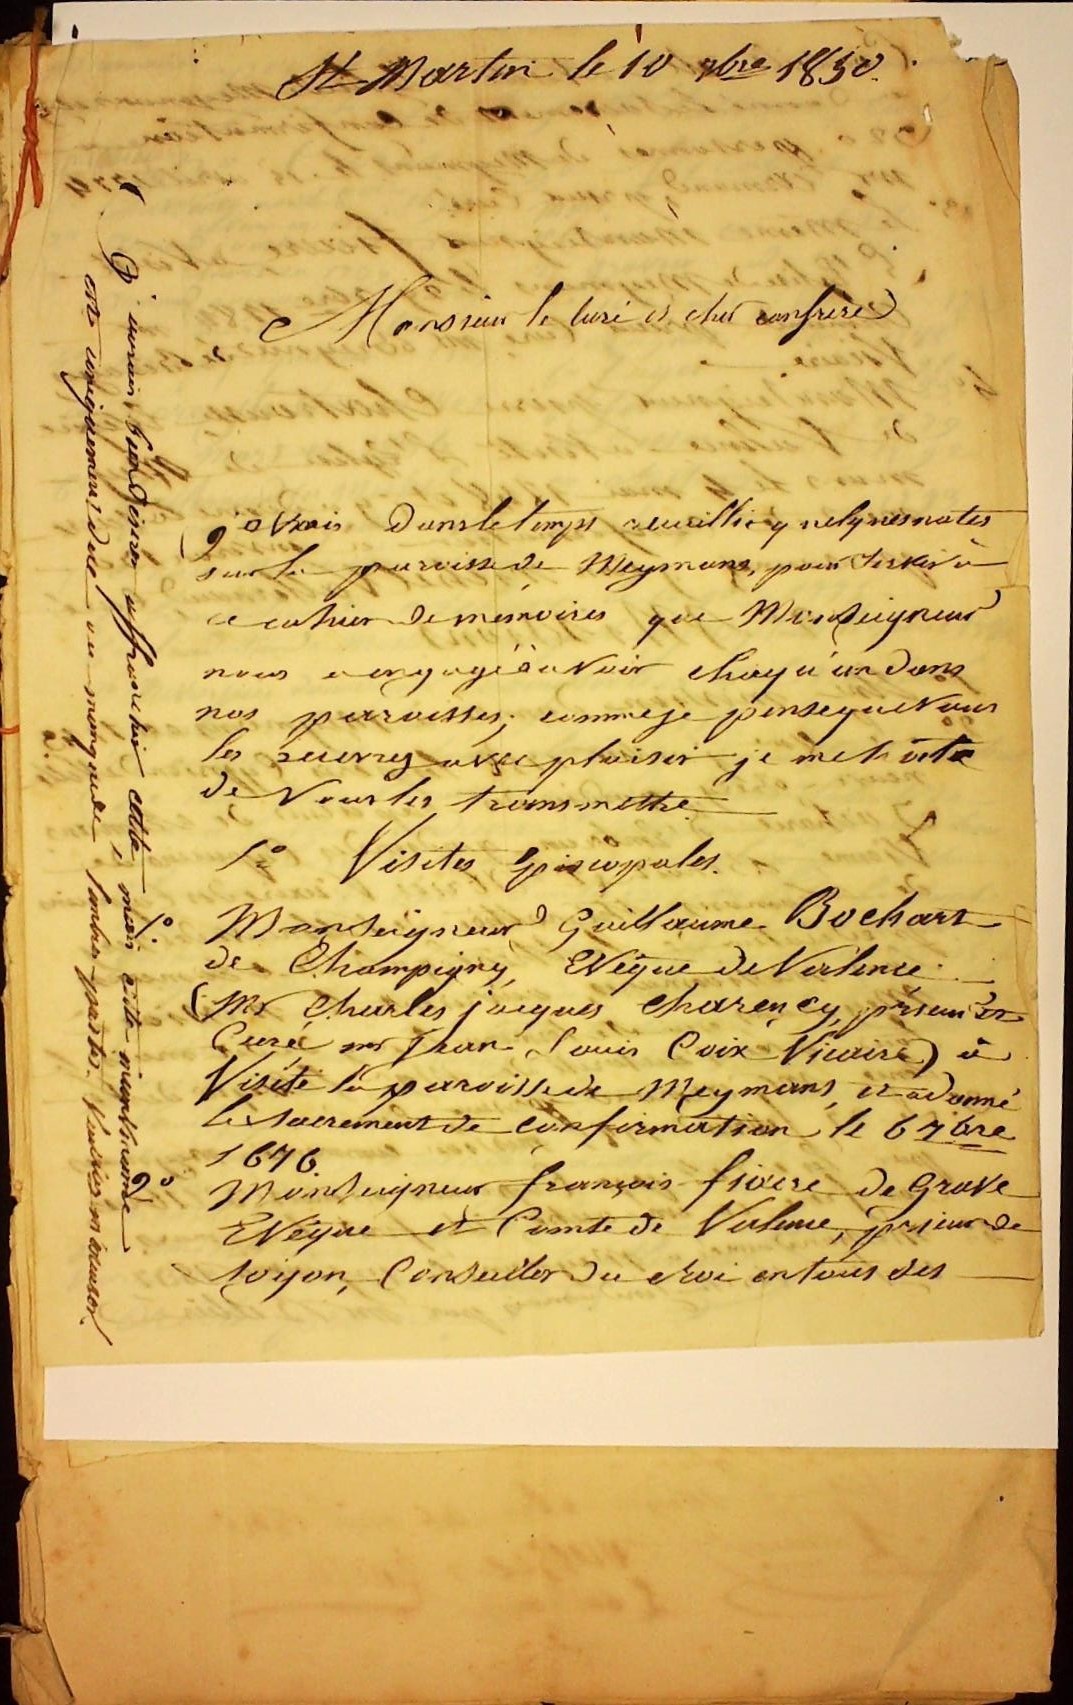 St Martin le 10 7bre 1850.
Monsieur le Curé et cher confrere
j'avais dans le temps recuillie quelques notes
sur la paroisse de Meymans, pour servir à
ce cahier de mémoires que Monseigneur
nous a engagé à avoir chaqu'un dans
nos paroisses; comme je pense que vous
les recevrez avec plaisir je me hâte
de vous les transmettre.
1º Visites Episcopales.
1º Monseigneur Guillaume Bochart
de Champigny, Evêque de Valence
(Mr Charles jacques Charency, prieur et
Curé mr fran. Louis Coix Vicaire) à
Visité la paroisse de Meymans, et a donné
le sacrement de confirmation le 6 7bre
1676.
2º Monseigneur françois fiacre de Grave
Evêque et Comte de Valence, prieur de
soyon, Conseiller du Roi en tous ses
J'aurais bien désiré affranchir cette, mais cette
est uniquement due au manque de timbres-postes. Veuillez m'excuser.